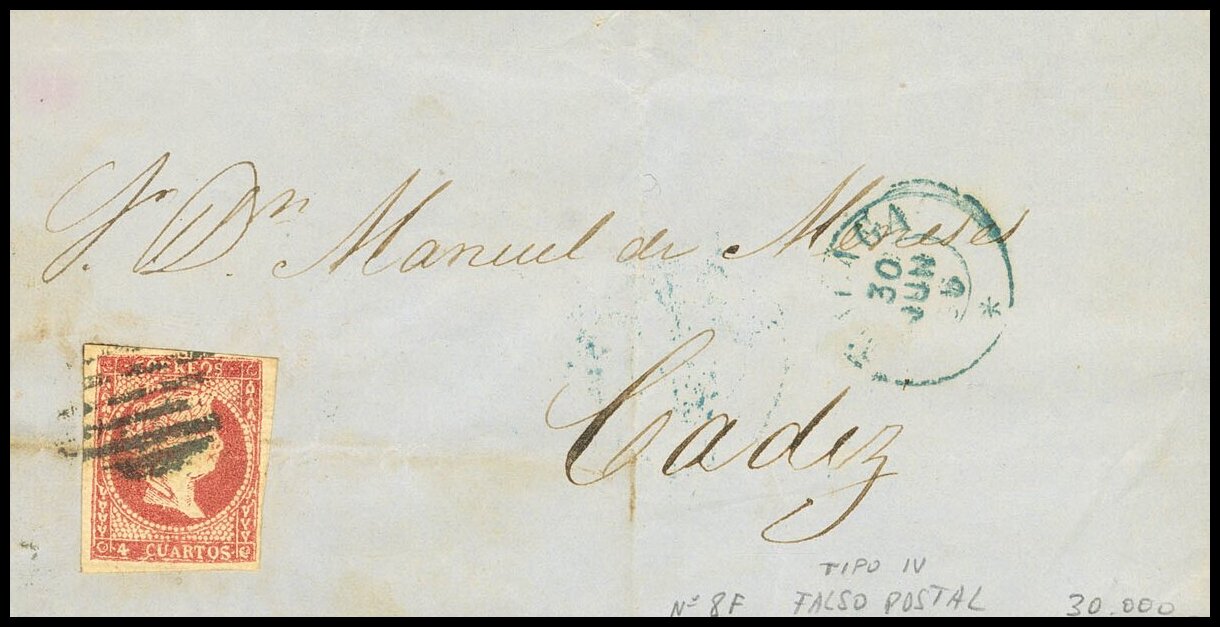 Sr. Dn. Manuel de Meneses
Cadiz
MALAGA
30
JUN
*
CORREOS
4 CUARTOS
TIPO IV
Nº 8F FALSO POSTAL 30.000